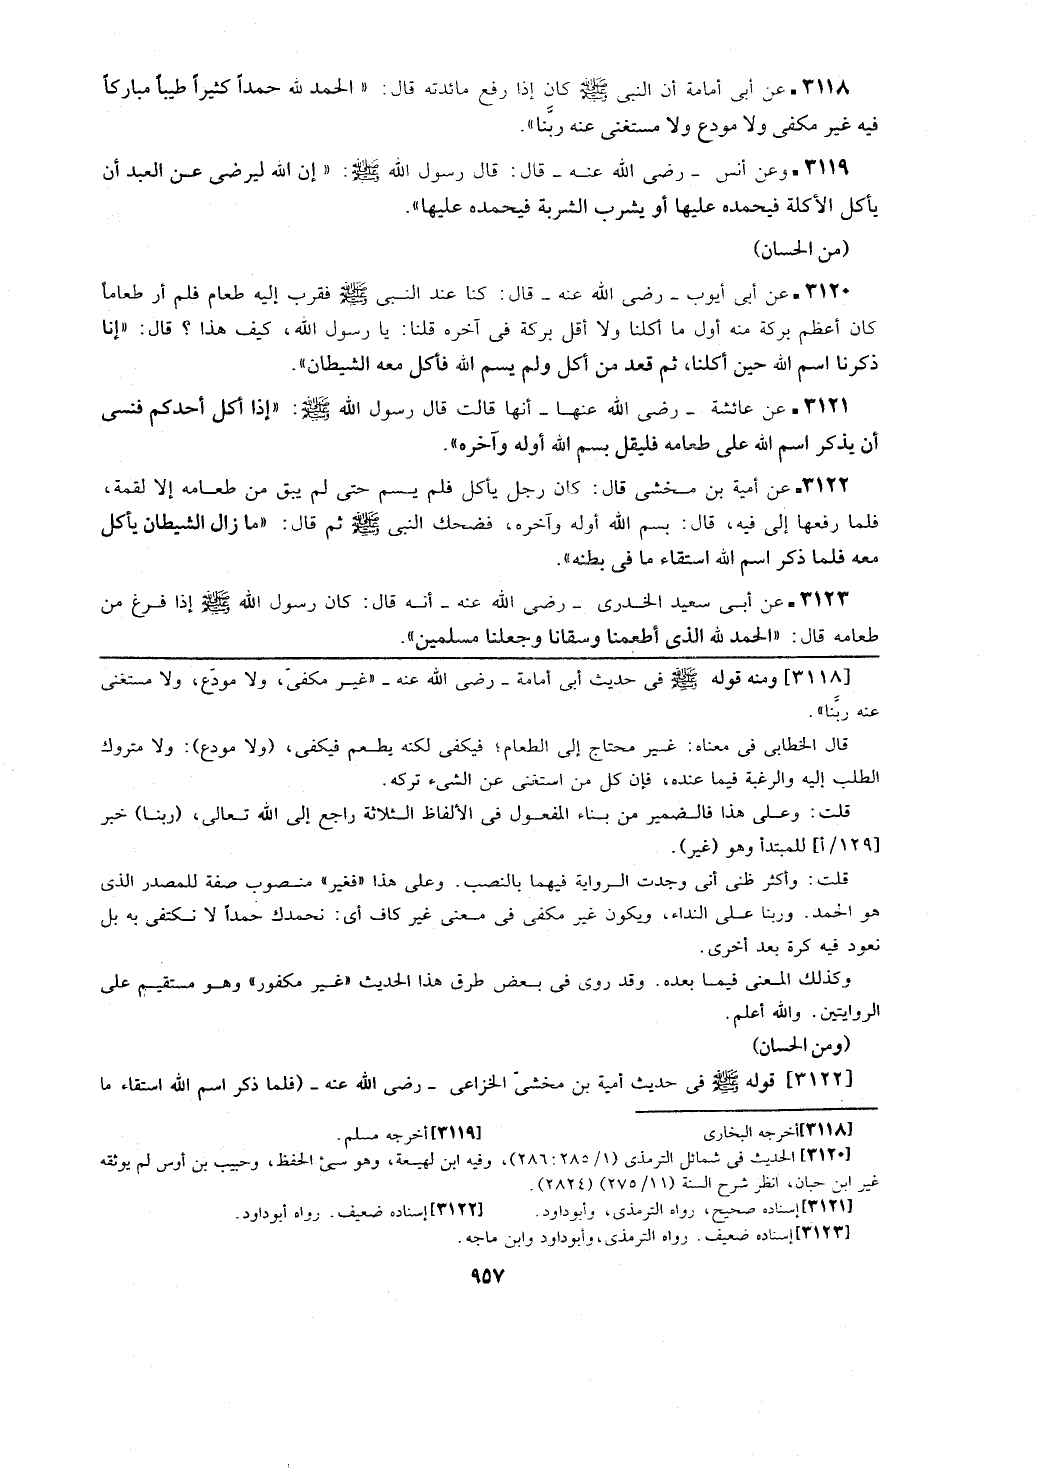 ٣١١٨ـ عن أبى أمامة أن النبى ﷺ كان إذا رفع مائدته قال: « الحمد لله حمداً كثيراً طيباً مباركاً
فيه غير مكفى ولا مودع ولا مستغنى عنه ربَّنا».
٣١١٩ـ وعن أنس ـ رضى الله عنه ـ قال: قال رسول الله ﷺ: « إن الله ليرضى عن العبد أن
يأكل الأكلة فيحمده عليها أو يشرب الشربة فيحمده عليها».
(من الحسان)
٣١٢٠ـ عن أبى أيوب ـ رضى الله عنه ـ قال: كنا عند النبى ﷺ فقرب إليه طعام فلم أر طعاماً
كان أعظم بركة منه أول ما أكلنا ولا أقل بركة فى آخره قلنا: يا رسول الله، كيف هذا ؟ قال: «إنا
ذكرنا اسم الله حين أكلنا، ثم قعد من أكل ولم يسم الله فأكل معه الشيطان».
٣١٢١ـ عن عائشة ـ رضى الله عنها ـ أنها قالت قال رسول الله ﷺ: «إذا أكل أحدكم فنسى
أن يذكر اسم الله على طعامه فليقل بسم الله أوله وآخره».
٣١٢٢ـ عن أمية بن مخشى قال: كان رجل يأكل فلم يسم حتى لم يبق من طعامه إلا لقمة،
فلما رفعها إلى فيه، قال: بسم الله أوله وآخره، فضحك النبى ﷺ ثم قال: «ما زال الشيطان يأكل
معه فلما ذكر اسم الله استقاء ما فى بطنه».
٣١٢٣ـ عن أبى سعيد الخدرى ـ رضى الله عنه ـ أنه قال: كان رسول الله ﷺ إذا فرغ من
طعامه قال: «الحمد لله الذى أطعمنا وسقانا وجعلنا مسلمين».
[٣١١٨] ومنه قوله ﷺ فى حديث أبى أمامة ـ رضى الله عنه ـ «غير مكفىّ، ولا مودّع، ولا مستغنى
عنه ربَّنا».
قال الخطابى فى معناه: غير محتاج إلى الطعام؛ فيكفى لكنه يطعم فيكفى، (ولا مودع): ولا متروك
الطلب إليه والرغبة فيما عنده، فإن كل من استغنى عن الشىء تركه.
قلت: وعلى هذا فالضمير من بناء المفعول فى الألفاظ الثلاثة راجع إلى الله تعالى، (ربنا) خبر
[١٢٩/أ] للمبتدأ وهو (غير).
قلت: وأكثر ظنى أنى وجدت الرواية فيهما بالنصب. وعلى هذا «فغير» منصوب صفة للمصدر الذى
هو الحمد. وربنا على النداء، ويكون غير مكفى فى معنى غير كاف أى: نحمدك حمداً لا نكتفى به بل
نعود فيه كرة بعد أخرى.
وكذلك المعنى فيما بعده. وقد روى فى بعض طرق هذا الحديث «غير مكفور» وهو مستقيم على
الروايتين. والله أعلم.
(ومن الحسان)
[٣١٢٢] قوله ﷺ فى حديث أمية بن مخشىّ الخزاعى ـ رضى الله عنه ـ (فلما ذكر اسم الله استقاء ما
[٣١١٨]أخرجه البخارى [٣١١٩]أخرجه مسلم.
[٣١٢٠]الحديث فى شمائل الترمذى (١/ ٢٨٥: ٢٨٦)، وفيه ابن لهيعة، وهو سيئ الحفظ، وحبيب بن أوس لم يوثقه
غير ابن حبان، انظر شرح السنة (١١/ ٢٧٥) (٢٨٢٤).
[٣١٢١]إسناده صحيح، رواه الترمذى، وأبوداود. [٣١٢٢]إسناده ضعيف. رواه أبوداود.
[٣١٢٣]إسناده ضعيف. رواه الترمذى،وأبوداود وابن ماجه.
٩٥٧